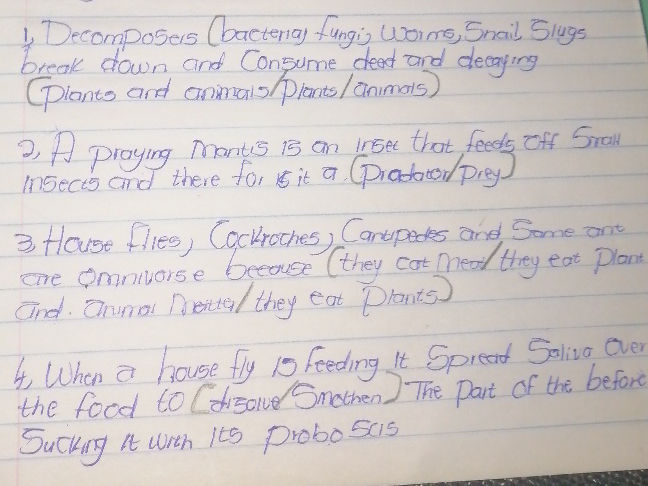 1, Decomposers (bacteria, fungi, Worms, Snail Slugs
break down and Consume dead and decaying
(plants and animals/plants/animals)
2, A praying mantis is an insec that feeds off Small
insects and there for is it a (Pradator/prey)
3, House flies, Cockroches, Cantipedes and Some ant
are omnivorse because (they eat meat/they eat plant
and. animal / they eat plants)
4, When a house fly is feeding it Spread Saliva over
the food to (disolve/Smothen) The Part of the before
Sucking it with its proboscis